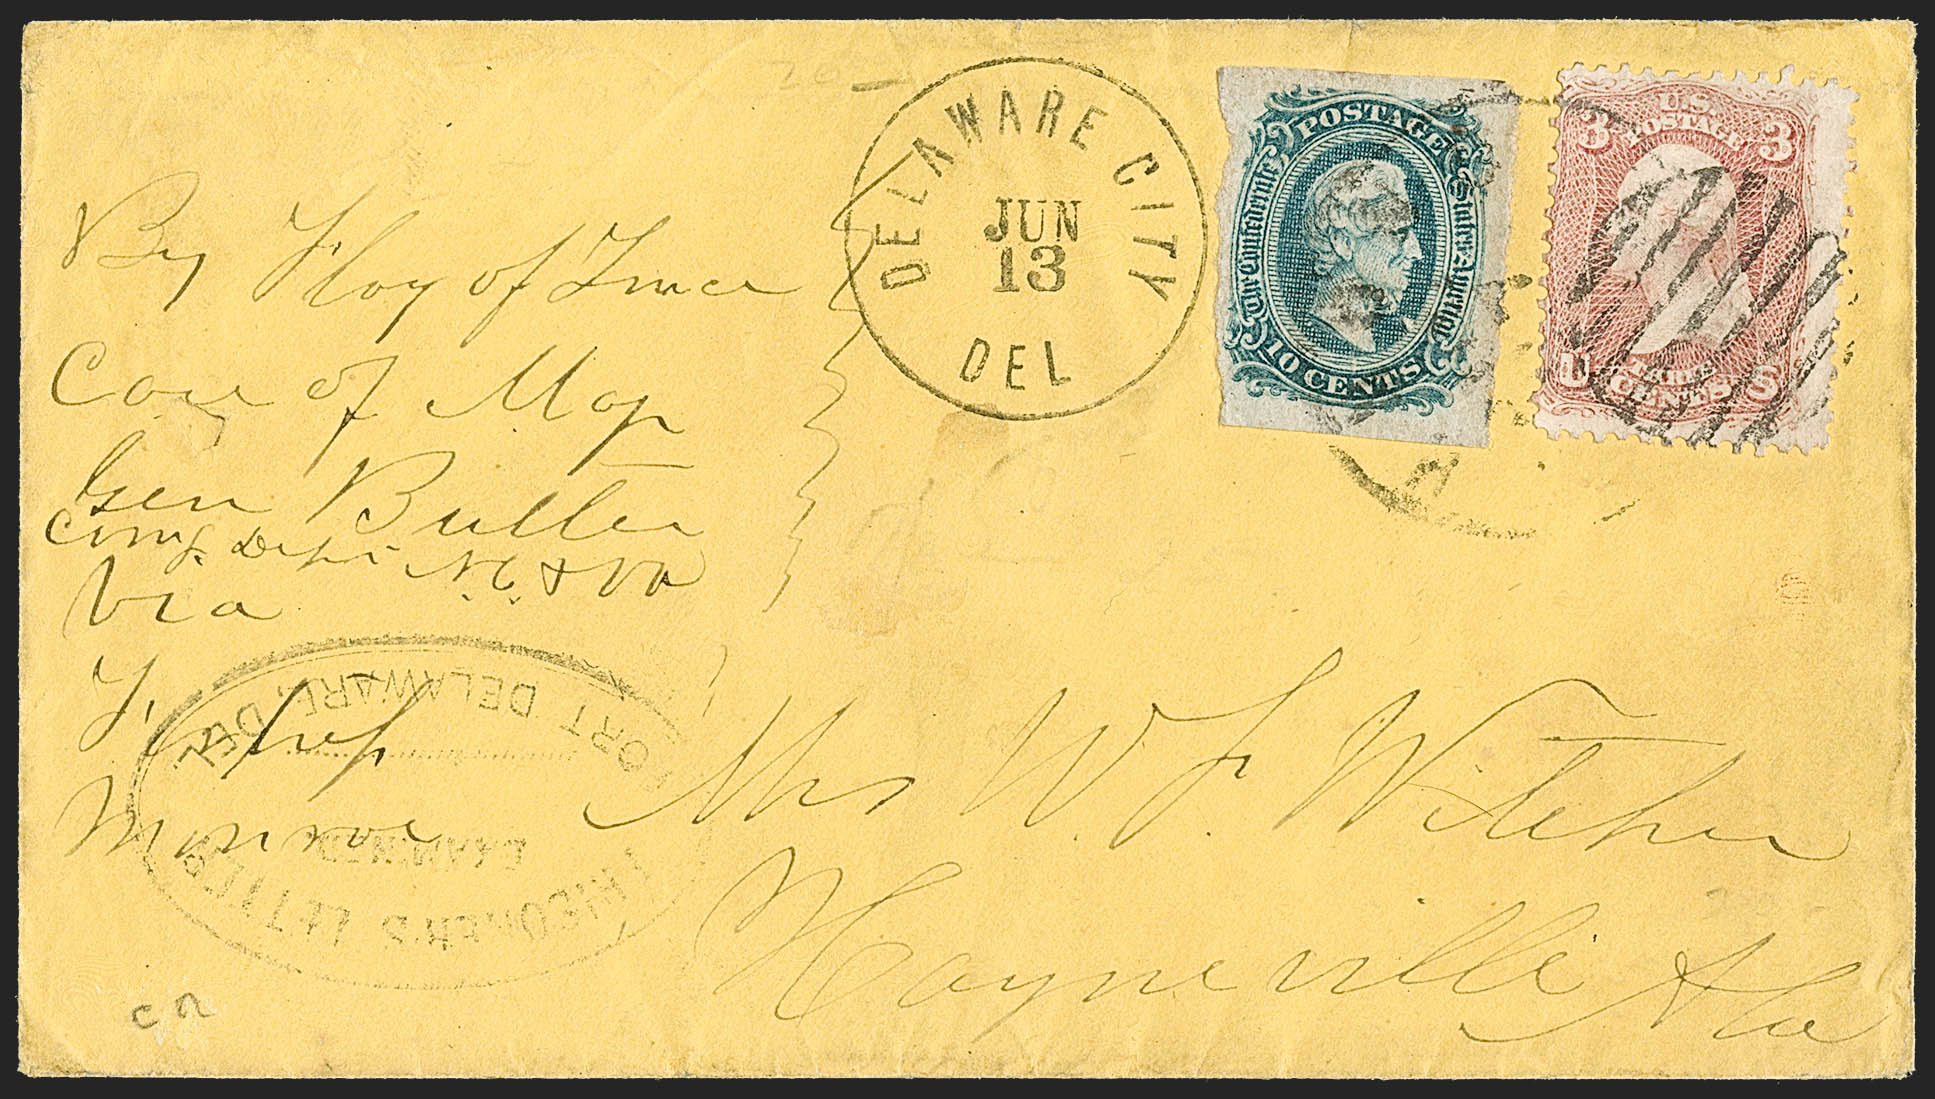 DELAWARE CITY
JUN
13
DEL
POSTAGE
The Confederate States of America
10 CENTS
U.S.
POSTAGE
3 3
U S
THREE
CENTS
By Flag of Truce
Care of Maj
Gen Butler
Comg. Dept N.C. & Va
Via
F, 
Monroe
Mrs W. F. Witcher
Hayneville Ala
FORT DELAWARE, DEL.
EXAMINED
PRISONER'S LETTER